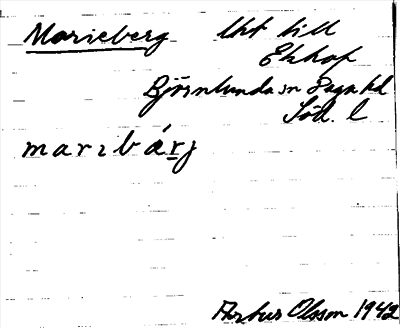 Marieberg lht till
Ekhof
Björnlunda sn Daga hd
Söd. l
marıbárj
Artur Olsson 1942